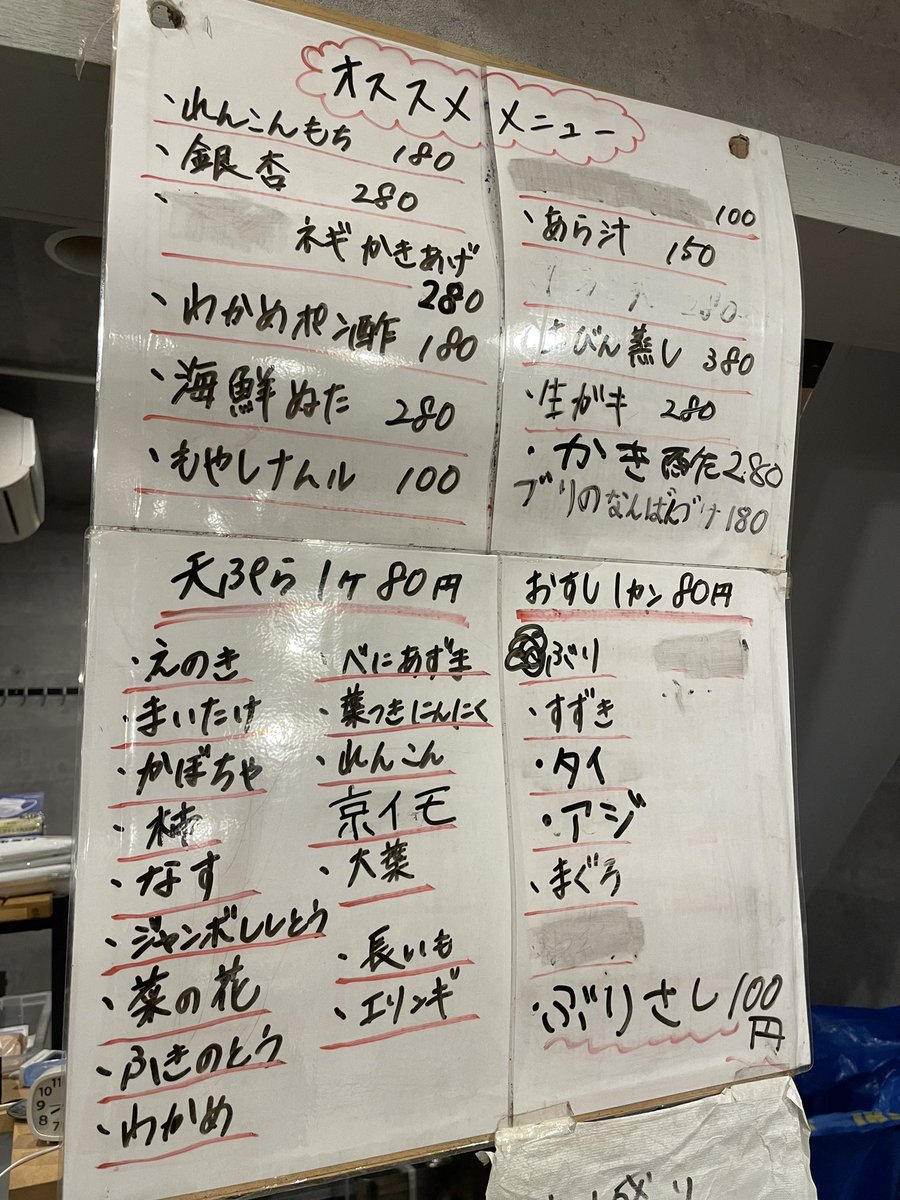 オススメメニュー
・れんこんもち 180
・銀杏 280
・ ネギかきあげ
280
・わかめポン酢 180
・海鮮ぬた 280
・もやしナムル 100
100
・あら汁 150
280
びん蒸し 380
・生ガキ 280
・かき酢 280
ブリのなんばんづけ 180
天ぷら 1ケ 80円
・えのき
・まいたけ
・かぼちゃ
・柿
・なす
・ジャンボししとう
・菜の花
・ふきのとう
・わかめ
・べにあずま
・葉つきにんにく
・れんこん
京イモ
・大葉
・長いも
・エリンギ
おすし 1カン 80円
ぶり
・すずき
・タイ
・アジ
・まぐろ
・ぶりさし 100
円